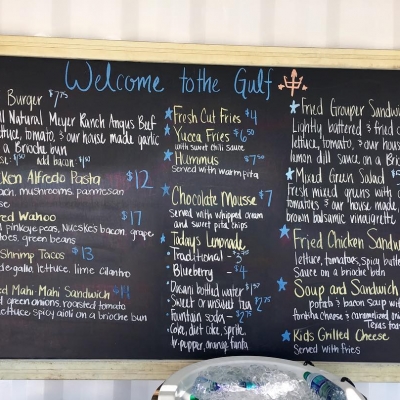 Welcome to the Gulf
Burger $7.75
Natural Meyer Ranch Angus Beef
lettuce, tomato, & our house made garlic
a Brioche bun
add bacon
Alfredo Pasta $12
mushrooms, parmesan
Wahoo $17
pinkeye peas, Nueskes bacon, grape
tomatoes, green beans
Shrimp Tacos $13
lettuce, lime cilantro
Mahi-Mahi Sandwich
green onions, roasted tomato
lettuce spicy aioli on a brioche bun
Fresh Cut Fries $4
Yucca Fries $6.50
with sweet chili sauce
Hummus $7.50
Served with warm pita
Chocolate Mousse $7
Served with whipped cream
and sweet pita chips
Todays Lemonade
- Traditional
- Blueberry $4
- Dasani bottled water
- Sweet or unsweet tea
- Fountain soda
- Coke, diet coke, sprite
dr. pepper, orange fanta
Fried Grouper
Lightly battered & fried
lettuce, tomato, & our house
lemon dill sauce on a
Mixed Green Salad
Fresh mixed greens with
tomatoes & our house made
brown balsamic vinaigrette
Fried Chicken
lettuce, tomatoes, spicy
sauce on a brioche bun
Soup and Sandwich
potato & bacon soup
cheese & caramelized
Texas
Kids Grilled Cheese
Served with fries